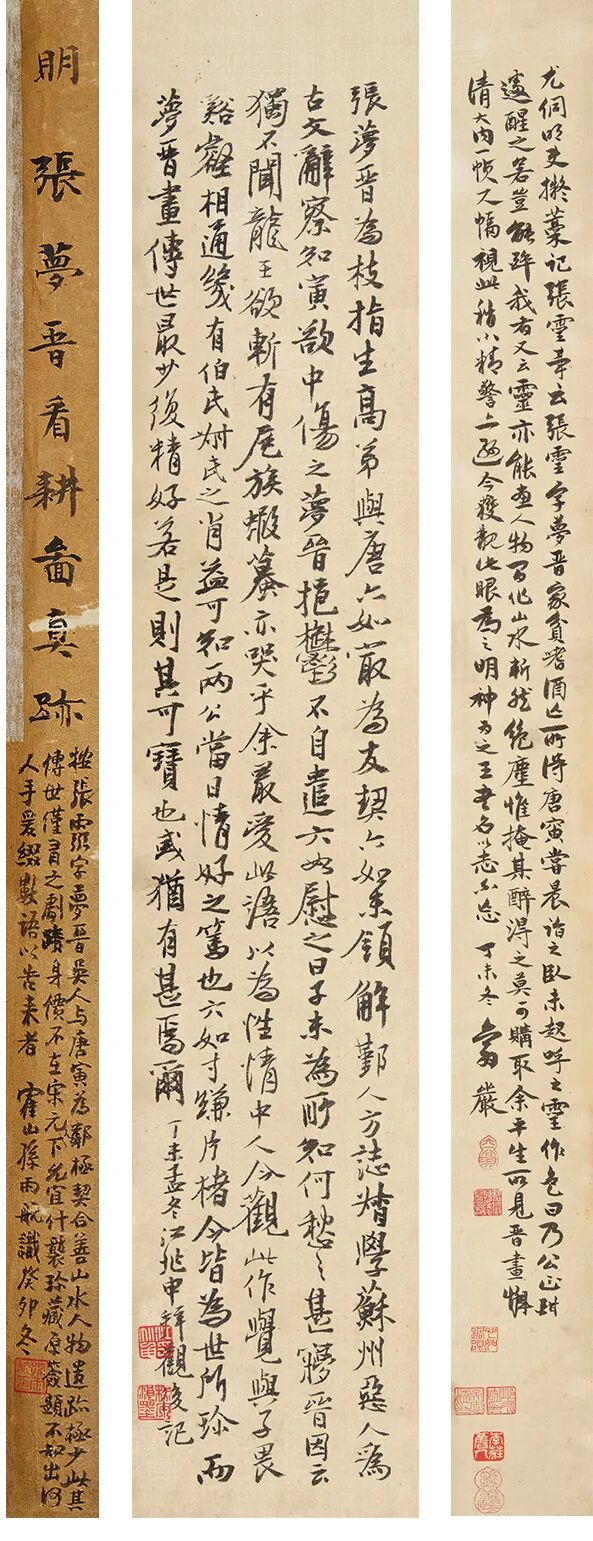 明張夢晉看耕圖真跡
按張靈字夢晉吳人与唐寅為鄰極契合善山水人物遺跡極少此其
傳世僅有之劇蹟身價不在宋元下允宜什襲珍藏原簽題不知出何
人手爰綴數語以告來者 霍山孫雨航識癸卯冬
張夢晉為枝指生高弟與唐六如最為友契六如未領解鄞人方誌督學蘇州惡人為
古文辭察知寅欲中傷之夢晉悒鬱不自遣六如慰之曰子未為所知何愁之甚夢晉因云
獨不聞龍王欲斬有尾族蝦蟇亦哭乎余最愛此語以為性情中人今觀此作覺與子畏
谿壑相通幾有伯氏之肖益可知兩公當日情好之篤也六如寸縑片楮今皆為世所珍而
夢晉畫傳世最少復精好若是則其可寶也或猶有甚焉爾 丁未孟冬江兆申拜觀後記
尤侗明史擬藁記張靈事云張靈字夢晉家貧嗜酒亡所得唐寅嘗晨詣之臥未起呼之靈作色曰乃公正酣
遽醒之若豈能我者又云靈亦能畫人物間作山水斬然絕塵惟掩其醉得之莫可購取余平生所見晉畫惟
清大內一幀尺幅視此稍小精警亦遜今獲觀此眼為之明神為之王書名以志不忘 丁未冬 嚴